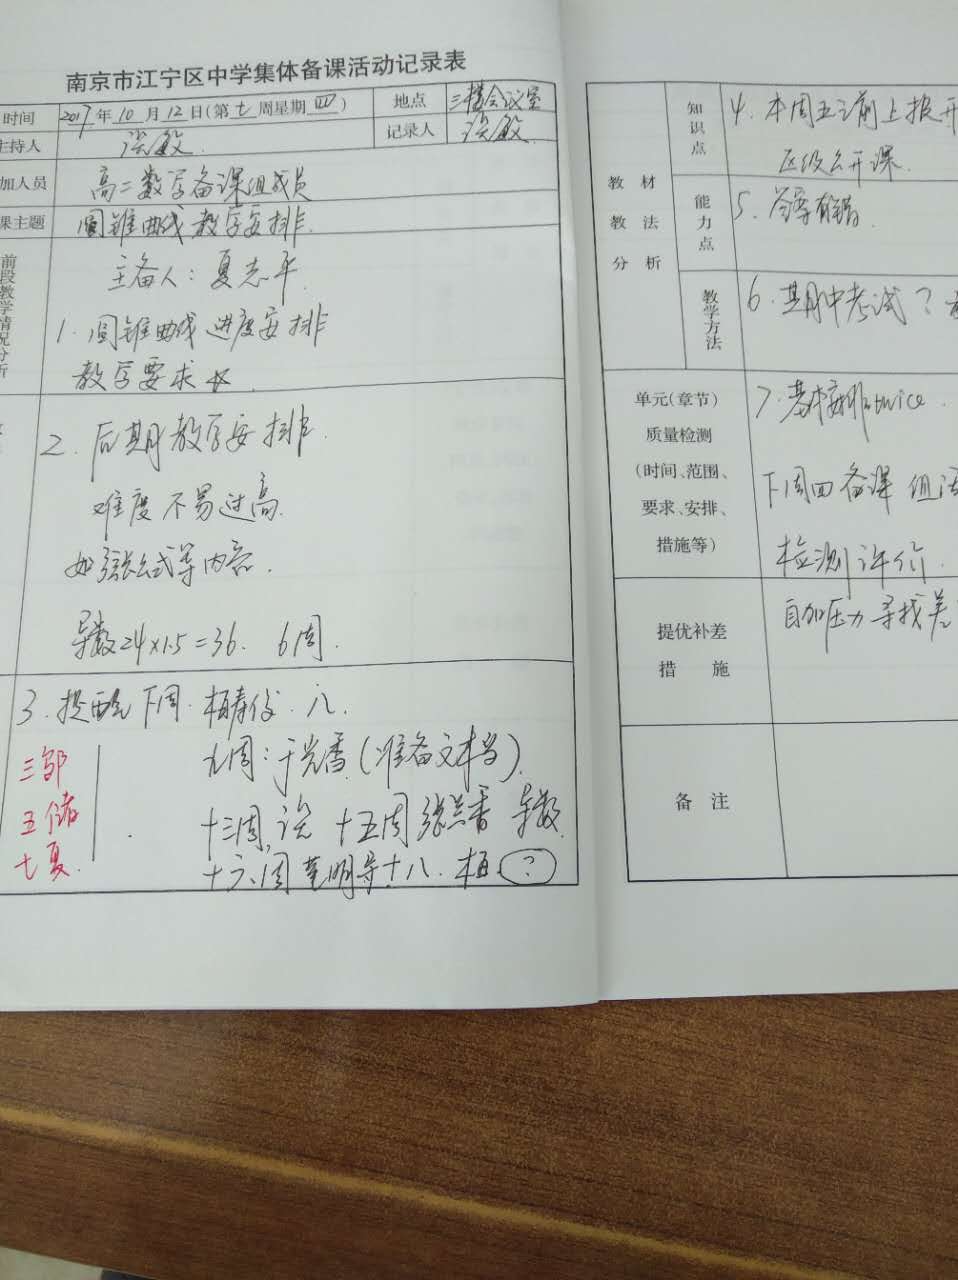 南京市江宁区中学集体备课活动记录表
时间 2017年10月12日(第七周星期四) 地点 三楼会议室
主持人 谈敏 记录人 谈敏
加人员 高二数学备课组成员
课主题 圆锥曲线教学安排
前段教学情况分析
主备人：夏志平
1. 圆锥曲线进度安排
教学要求
2. 后期教学安排
难度不易过高
如弦长公式等内容.
导数 24×1.5=36. 6周.
3. 提醒下周 八.
三邹
五储
七夏.
九周：于光香(准备文本).
十三周,谈 十五周 张兰香 导数
十六周 董明导十八. 柏 ?
教材教法分析
知识点
4. 本周五之前上报开
区级公开课
能力点
5.
教学方法
6. 期中考试？
单元(章节)
质量检测
(时间、范围、
要求、安排、
措施等)
7. twice.
下周四备课组活
检测评价.
提优补差
措施
自加压力 寻找差
备注